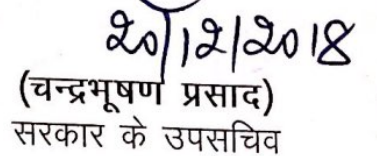 20/12/2018
(चन्द्रभूषण प्रसाद)
सरकार के उपसचिव